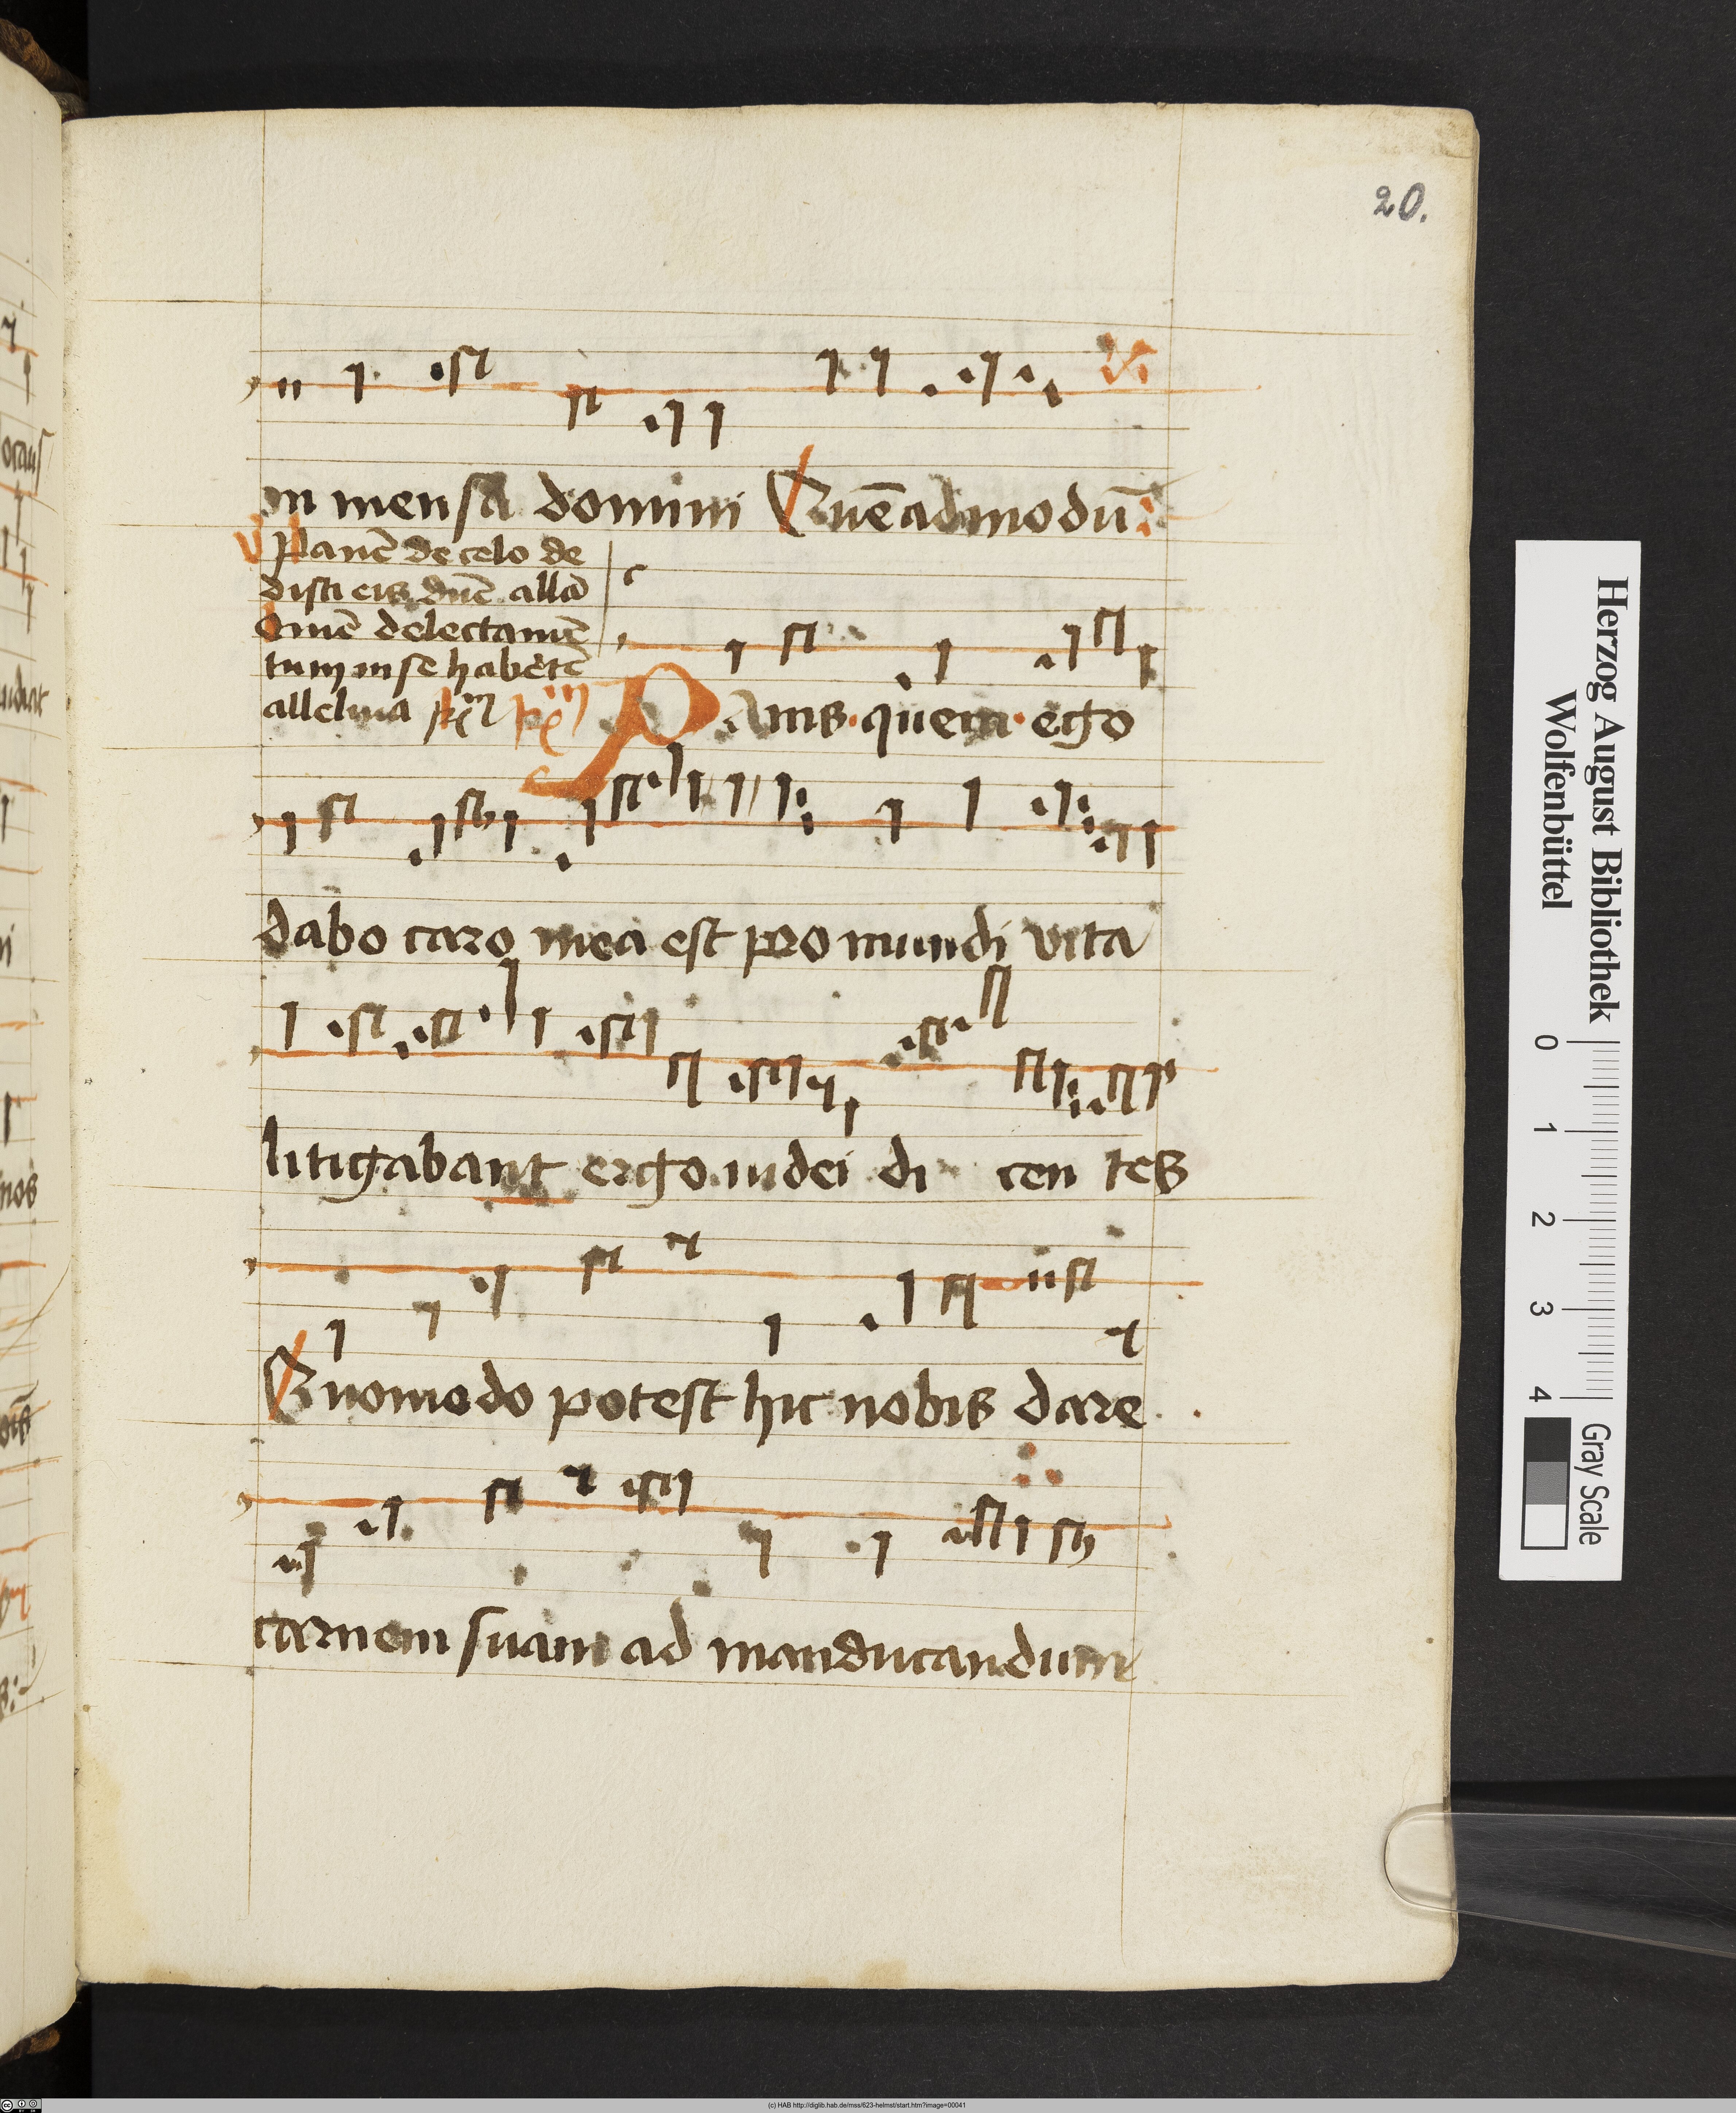 20.
in mensa domini Quēadmodū:
Panē de celo de
disti eis dn̄e allā
Omē delectamē
tum in se habētē
alleluia
PAnis quem ego
dabo caro mea est pro mundi vita
litigabant ergo iudei di cen tes
Quomodo potest hic nobis dare
carnem suam ad manducandum
Herzog August Bibliothek
Wolfenbüttel
0 1 2 3 4
Gray Scale
(c) HAB http://diglib.hab.de/mss/623-helmst/start.htm?image=00041